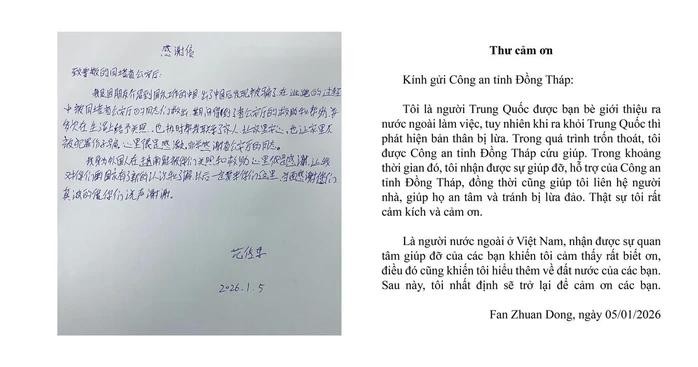 感谢信
致尊敬的同塔省公安厅:
我是因朋友介绍到国外工作的中国
出了中国后发现被骗了在逃跑的过程
中被同塔省公安厅的同志们救出
在生活上给予关照
也让家里不
我身为外国人在越南能被你们关照和救助心里很是感谢,让我
对你们国家有了新的认识和了解
真诚的对你们说声谢谢。
2026.1.5
Thư cảm ơn
Kính gửi Công an tỉnh Đồng Tháp:
Tôi là người Trung Quốc được bạn bè giới thiệu ra
nước ngoài làm việc, tuy nhiên khi ra khỏi Trung Quốc thì
phát hiện bản thân bị lừa. Trong quá trình trốn thoát, tôi
được Công an tỉnh Đồng Tháp cứu giúp. Trong khoảng
thời gian đó, tôi nhận được sự giúp đỡ, hỗ trợ của Công an
tỉnh Đồng Tháp, đồng thời cũng giúp tôi liên hệ người
nhà, giúp họ an tâm và tránh bị lừa đảo. Thật sự tôi rất
cảm kích và cảm ơn.
Là người nước ngoài ở Việt Nam, nhận được sự quan
tâm giúp đỡ của các bạn khiến tôi cảm thấy rất biết ơn,
điều đó cũng khiến tôi hiểu thêm về đất nước của các bạn.
Sau này, tôi nhất định sẽ trở lại để cảm ơn các bạn.
Fan Zhuan Dong, ngày 05/01/2026